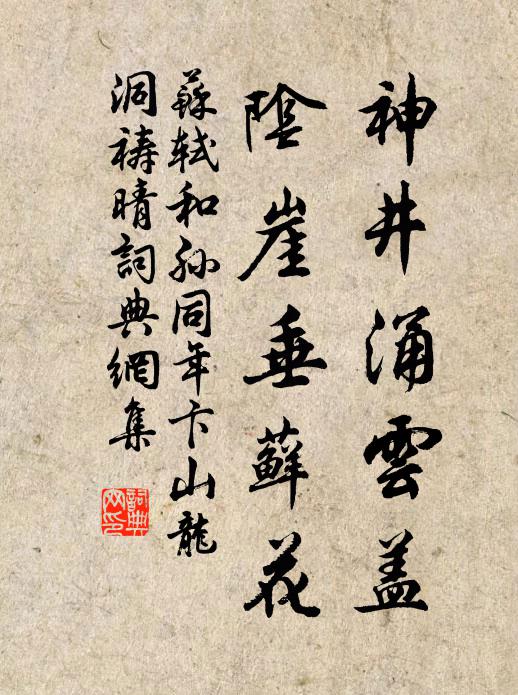 神井涌雲盖
陰崖垂蘚花
蘇軾和孙同年卞山龍
洞禱晴詞典網集
詞典网印